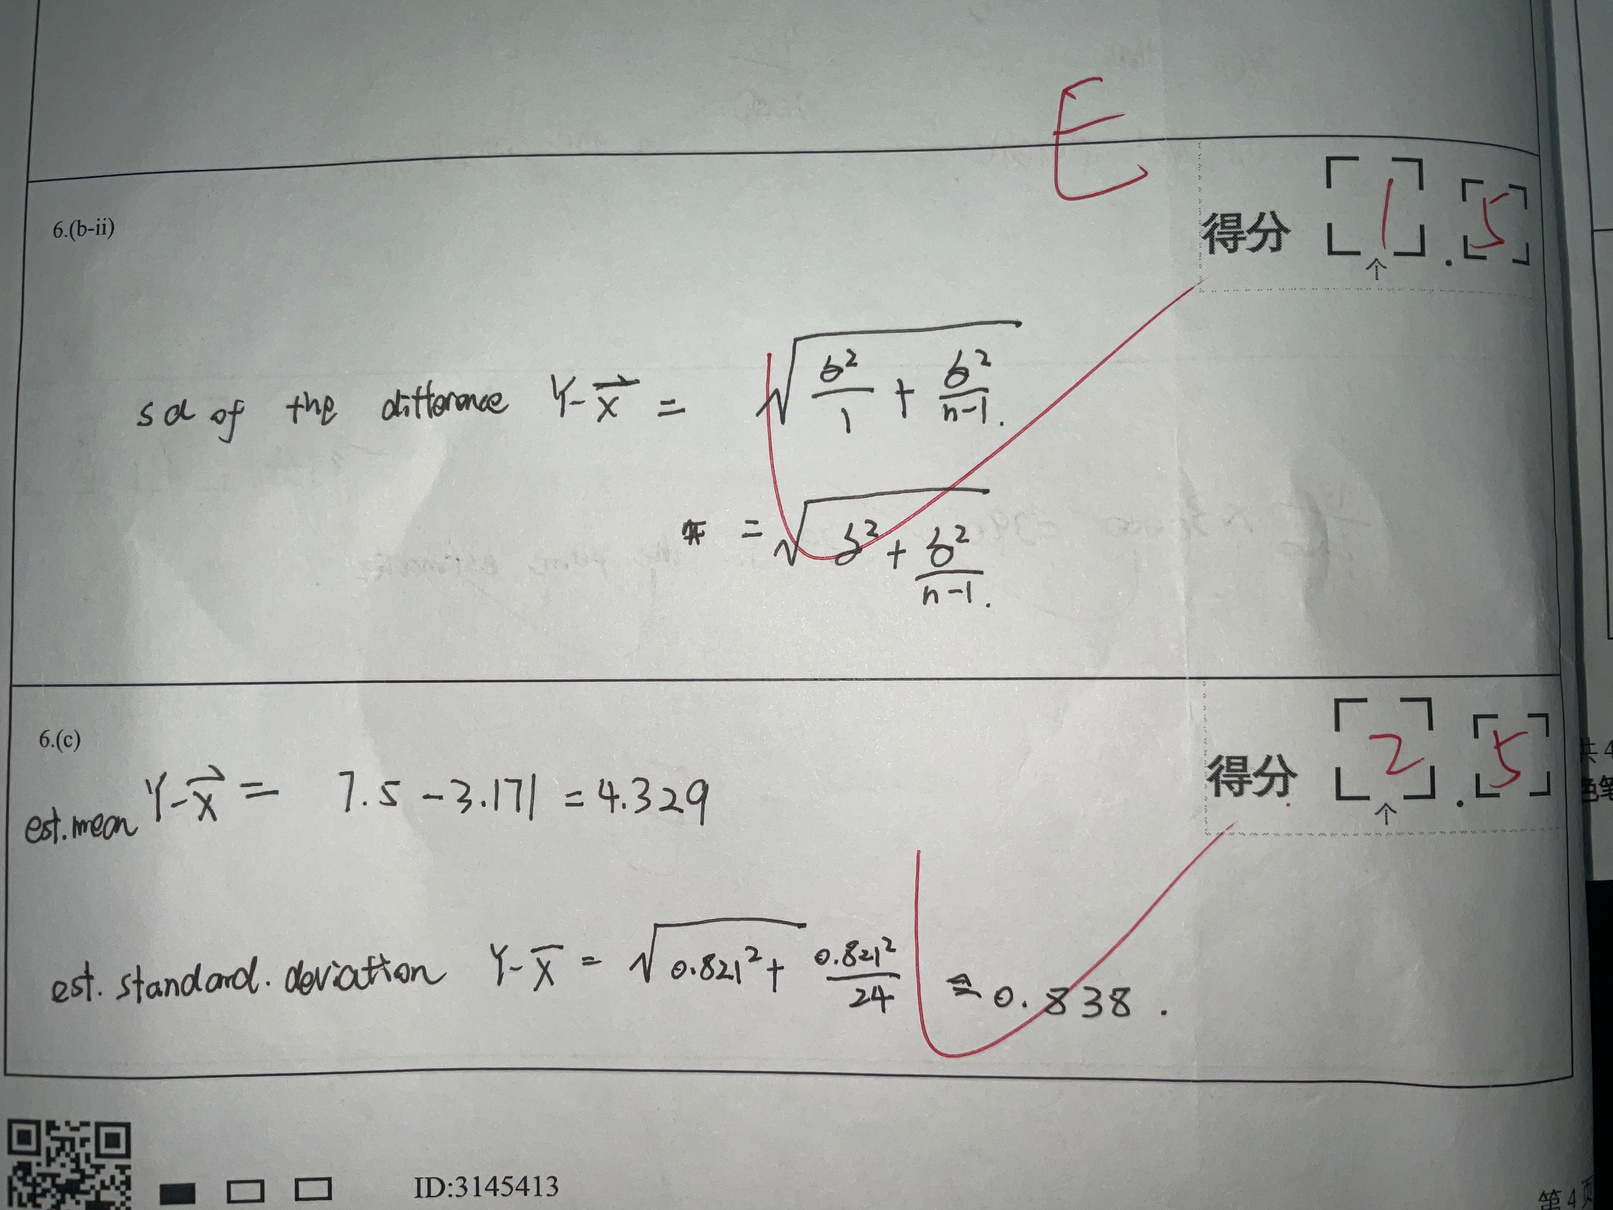 E
6.(b-ii)
得分 1 . 5
sd of the difference Y-x⃗ = √(σ²/1 + σ²/(n-1)).
= √(σ² + σ²/(n-1)).
6.(c)
得分 2 . 5
est.mean Y-x⃗ = 7.5 - 3.171 = 4.329
est. standard. deviation Y-x̄ = √(0.821² + 0.821²/24) ≈ 0.838.
ID:3145413
共 4
色笔
第 4 页